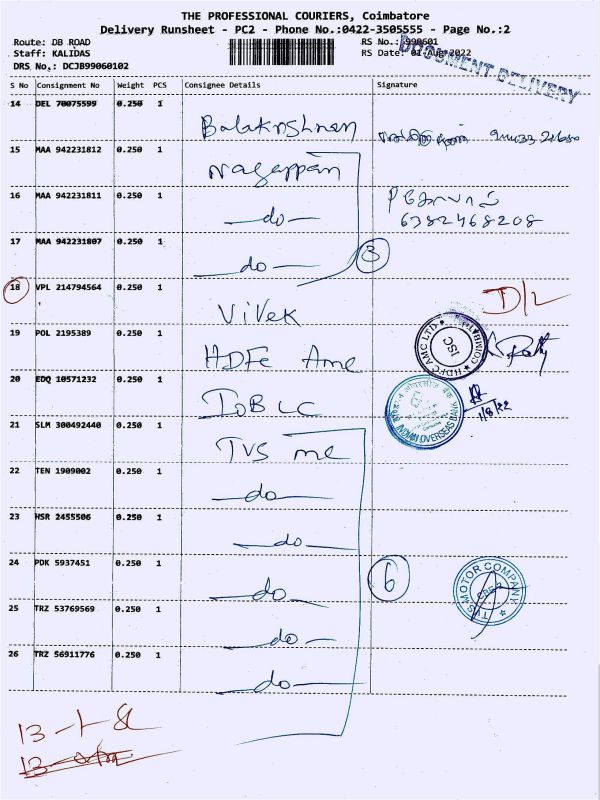 THE PROFESSIONAL COURIERS, Coimbatore
Delivery Runsheet - PC2 - Phone No.:0422-3505555 - Page No.:2
Route: DB ROAD RS No.: 990601
Staff: KALIDAS RS Date: 01-Aug-2022
DRS No.: DCJB99060102
DOCUMENT DELIVERY
S No Consignment No Weight PCS Consignee Details Signature
14 DEL 70075599 0.250 1
Balakrishnan
15 MAA 942231812 0.250 1
Nagappan
16 MAA 942231811 0.250 1
do
6382468208
17 MAA 942231807 0.250 1
do
3
18 VPL 214794564 0.250 1
Vivek D/L
19 POL 2195389 0.250 1
HDFC AMC
HDFC AMC LTD
ISC
20 EDQ 10571232 0.250 1
IOB LC
INDIAN OVERSEAS BANK
1/8/22
21 SLM 300492440 0.250 1
TVS mc
22 TEN 1909002 0.250 1
do
23 HSR 2455506 0.250 1
do
24 PDK 5937451 0.250 1
do
6
TVS MOTOR COMPANY
25 TRZ 53769569 0.250 1
do
26 TRZ 56911776 0.250 1
do